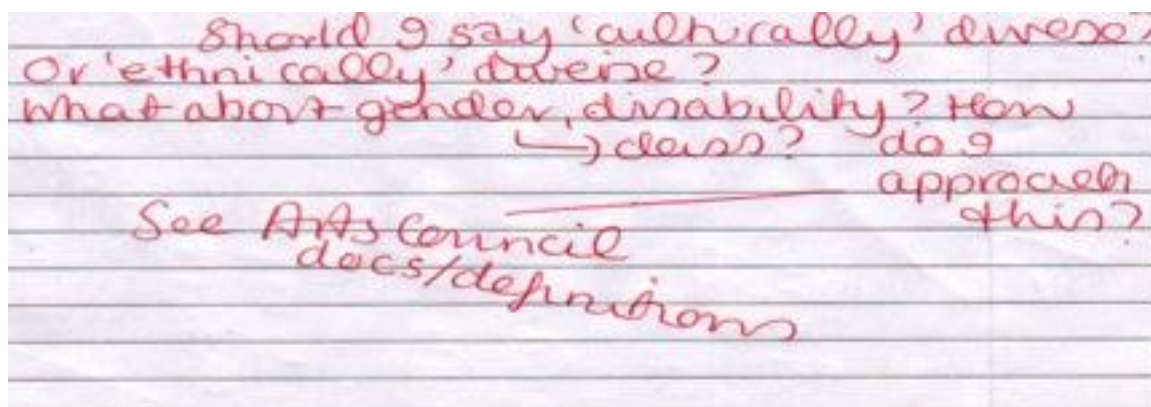 Should I say 'culturally' diverse?
Or 'ethnically' diverse?
What about gender, disability? How
↳ class? do I
approach
this?
See Arts Council
docs/definitions